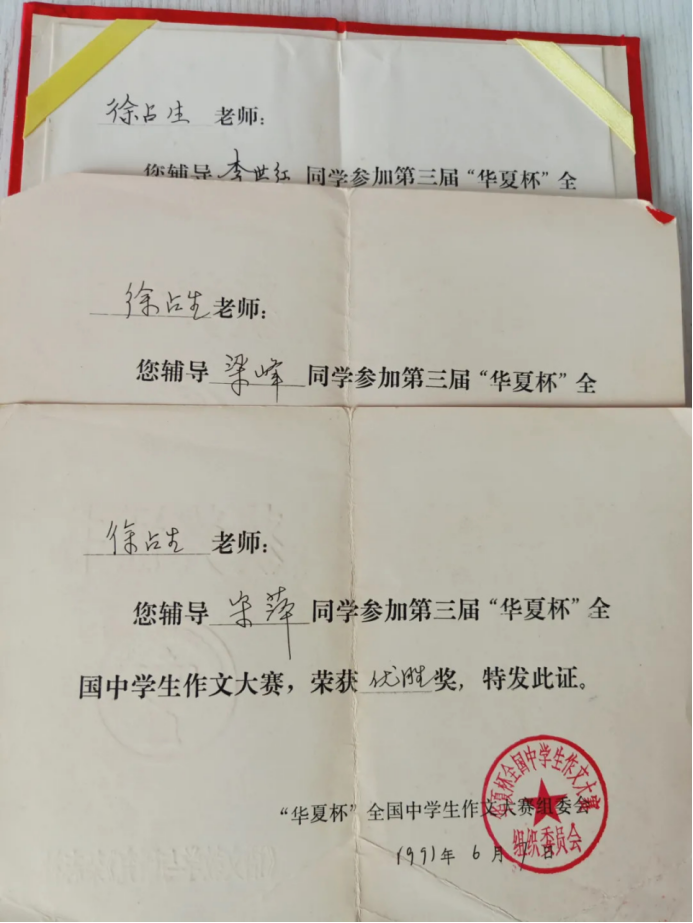 徐占生老师：
您辅导李世红同学参加第三届“华夏杯”全
徐占生老师：
您辅导梁峰同学参加第三届“华夏杯”全
徐占生老师：
您辅导宋萍同学参加第三届“华夏杯”全
国中学生作文大赛，荣获优胜奖，特发此证。
“华夏杯”全国中学生作文大赛组委会
1991年6月1日
华夏杯全国中学生作文大赛
组织委员会